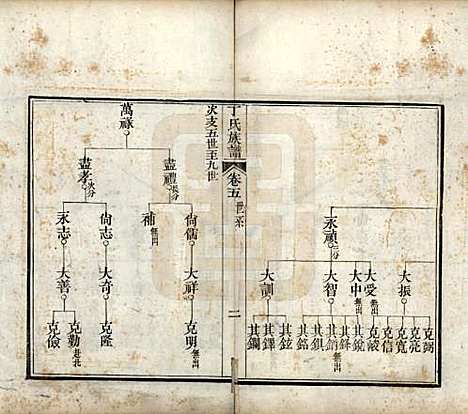 永頑二分
大振
大受無出
大中無出
大智
大訓
克弼
克亮
克寬
克信
克陵
其銳
其鋒
其銷無出
其錤
其銘
其鉉
其鐸
其鑭
丁氏族譜
卷五世系
二
次支五世至九世
萬祿
盡禮長分
盡孝次分
尚儒
補無出
尚志
永志
大祥
大奇
大善
克明無出
克隆
克勤赴北
克儉